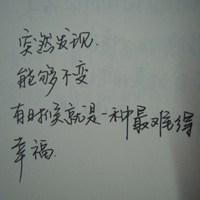 突然发现.
能够不变
有时候就是一种最难得
幸福.